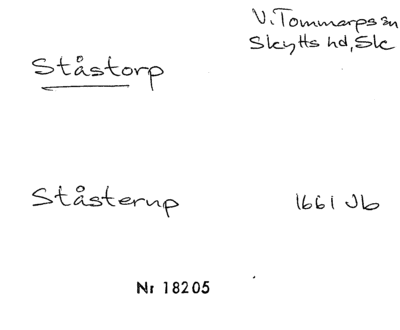 V. Tommarps sn
Skytts hd, Sk
Ståstorp
Ståsterup 1661 Jb
Nr 18205